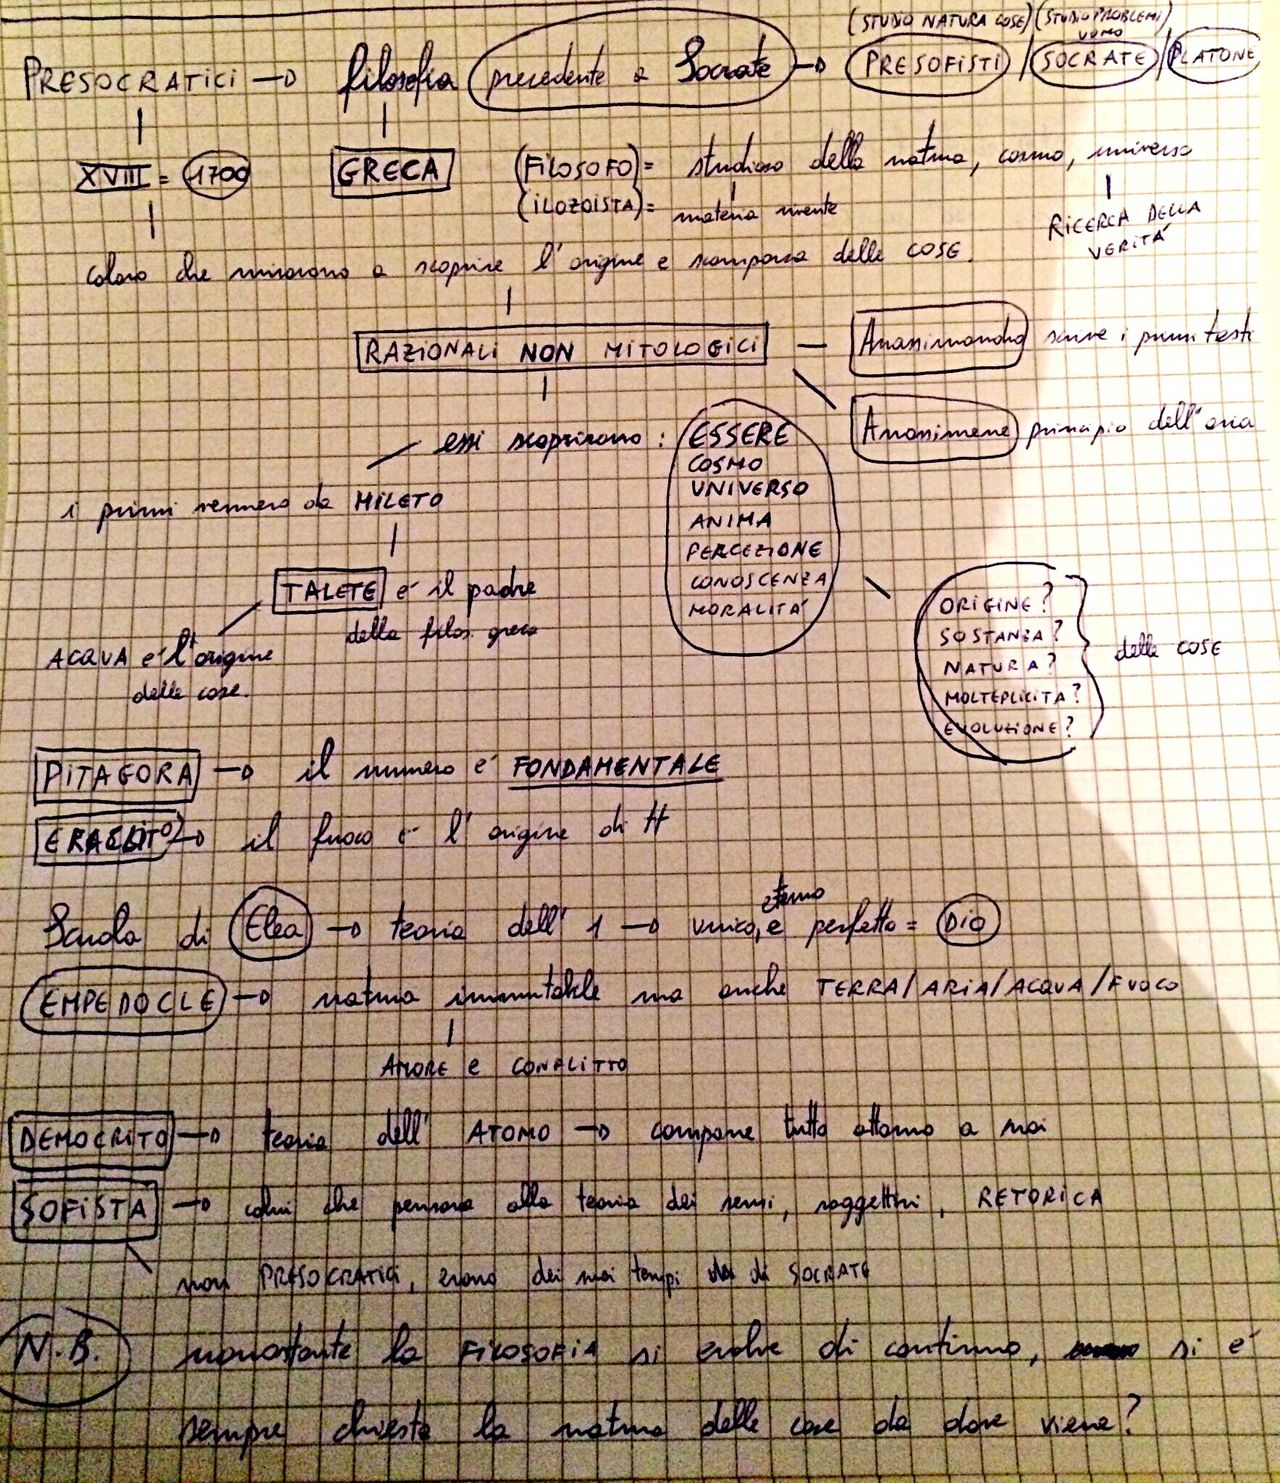 (STUDIO NATURA COSE) (STUDIO PROBLEMI UOMO)
PRESOCRATICI → filosofia precedente a Socrate → PRESOFISTI / SOCRATE / PLATONE
XVIII = 1700 GRECA (FILOSOFO) = studioso della natura, cosmo, universo
(ILOZOISTA) = materia vivente
RICERCA DELLA VERITÁ
coloro che miravano a scoprire l'origine e scomparsa delle COSE.
RAZIONALI NON MITOLOGICI — Anassimandro scrive i primi testi
Anassimene principio dell'aria
essi scoprirono: ESSERE
COSMO
UNIVERSO
ANIMA
PERCEZIONE
CONOSCENZA
MORALITÁ
i primi vennero da MILETO
TALETE é il padre
della filos. greca
ACQUA é l'origine
delle cose.
ORIGINE?
SOSTANZA?
NATURA?
MOLTEPLICITA?
EVOLUZIONE?
delle COSE
PITAGORA → il numero é FONDAMENTALE
ERACLITO → il fuoco é l'origine di tt
Scuola di Elea → teoria dell'1 → unico, eterno e perfetto = DIO
EMPEDOCLE → natura immutabile ma anche TERRA/ARIA/ACQUA/FUOCO
AMORE e CONFLITTO
DEMOCRITO → teoria dell'ATOMO → compone tutto attorno a noi
SOFISTA → colui che pensava alla teoria dei sensi, soggettivi, RETORICA
non PRESOCRATICI, erano dei suoi tempi di SOCRATE
N.B. nonostante la FILOSOFIA si evolve di continuo, si é
sempre chiesta la natura delle cose da dove viene?